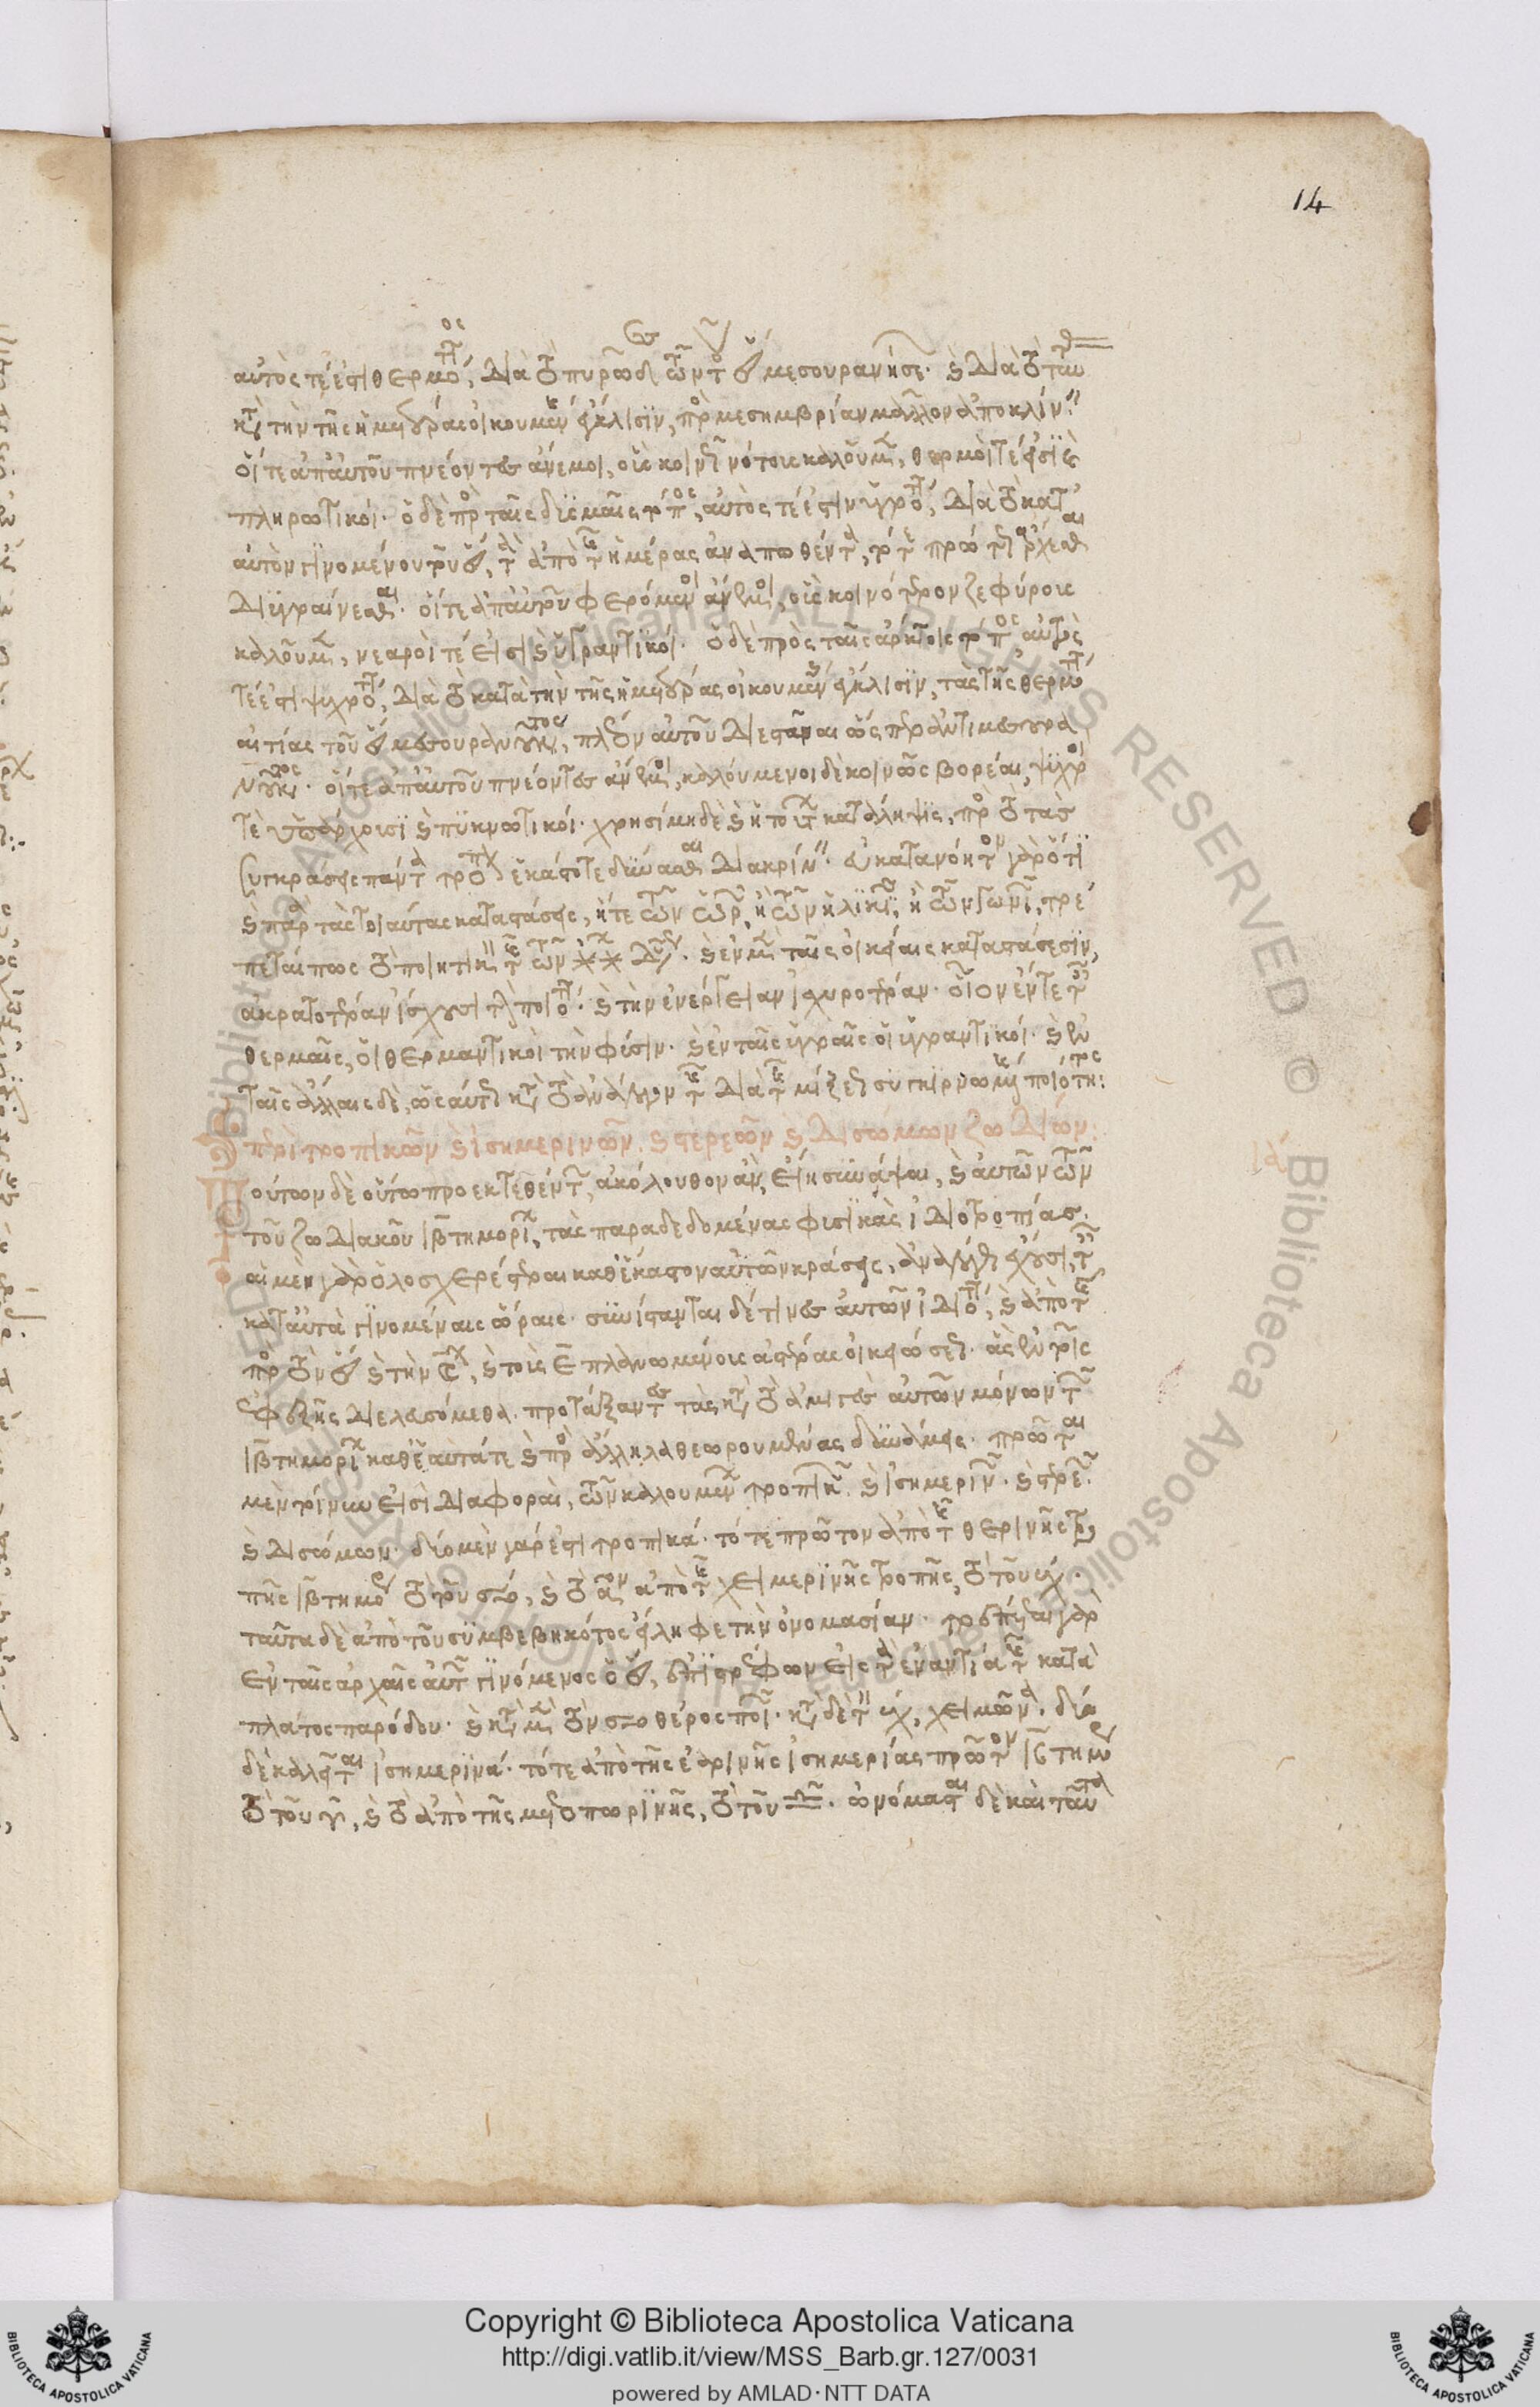 14
αὐτός τέ ἐστι θερμότατος, διὰ τὸ πυρῶδες τῶν τοῦ ἡλίου μεσουρανήσεων. καὶ διὰ τὸ ταύτας
κατὰ τὴν τῆς ἡμετέρας οἰκουμένης ἔγκλισιν, πρὸς μεσημβρίαν μᾶλλον ἀποκλίνειν.
οἵ τε ἀπ' αὐτοῦ πνέοντες ἄνεμοι, οὓς κοινῶς νότους καλοῦμεν, θερμοί τέ εἰσι καὶ
πληρωτικοί. ὁ δὲ πρὸς ταῖς δυσμαῖς τόπος, αὐτός τέ ἐστιν ὑγρός, διὰ τὸ κατ'
αὐτὸν γινομένου τοῦ ἡλίου, τὰ ἀπὸ τῆς ἡμέρας ἀναποθέντα, τότε πρῶτον ἄρχεσθαι
διυγραίνεσθαι. οἵ τε ἀπ' αὐτοῦ φερόμενοι ἄνεμοι, οὓς κοινότερον ζεφύρους
καλοῦμεν, νεαροί τέ εἰσι καὶ ὑγραντικοί. ὁ δὲ πρὸς ταῖς ἄρκτοις τόπος αὐτός
τέ ἐστι ψυχρότατος, διὰ τὸ κατὰ τὴν τῆς ἡμετέρας οἰκουμένης ἔγκλισιν, τὰς τῆς θερμότητος
αἰτίας τοῦ ἡλίου μεσουρανοῦντος, πλεῖον αὐτοῦ διεστάναι ὥσπερ ἀντιμεσουρα
νοῦντος. οἵ τε ἀπ' αὐτοῦ πνέοντες ἄνεμοι, καλούμενοι δὲ κοινῶς βορέαι, ψυχροί
τε ὑπάρχουσι καὶ πυκνωτικοί. χρησίμη δὲ καὶ ἡ τούτων κατάληψις, πρὸς τὸ τὰς
συγκράσεις πάντα τρόπον ἑκάστοτε δύνασθαι διακρίνειν. εὐκατανόητον γὰρ ὅτι
καὶ παρὰ τὰς τοιαύτας καταστάσεις, ἤτε τῶν ὡρῶν, ἢ τῶν ἡλικιῶν, ἢ τῶν γωνιῶν, τρέ
πεταί πως τὸ ποιητικὸν τῆς τῶν ἀστέρων δυνάμεως. καὶ ἐν μὲν ταῖς οἰκείαις καταστάσεσιν,
ἀκρατοτέραν ἴσχουσι τὴν ποιότητα. καὶ τὴν ἐνέργειαν ἰσχυροτέραν. οἷον ἐν τε ταῖς
θερμαῖς, οἱ θερμαντικοὶ τὴν φύσιν. καὶ ἐν ταῖς ὑγραῖς οἱ ὑγραντικοί. καὶ ἐν
ταῖς ἄλλαις δὲ, ὡσαύτως κατὰ τὸ ἀνάλογον τῆς διὰ τῆς μίξεως συγκιρναμένης ποιότητος:
περὶ τροπικῶν καὶ ἰσημερινῶν. καὶ στερεῶν καὶ δισώμων ζωδίων: ια
τούτων δὲ οὕτω προεκτεθέντων, ἀκόλουθον ἂν, εἴη συνάψαι, καὶ αὐτῶν τῶν
τοῦ ζωδιακοῦ ιβτημορίων, τὰς παραδεδομένας φυσικὰς ἰδιοτροπίας.
αἱ μὲν γὰρ ὁλοσχερέστεραι καθ' ἕκαστον αὐτῶν κράσεις, ἀναλόγως ἔχουσι, ταῖς
κατ' αὐτὰ γινομέναις ὥραις. συνίστανται δέ τινες αὐτῶν ἰδιότητες, καὶ ἀπὸ τῆς
πρὸς τὸν ἥλιον καὶ τὴν σελήνην, καὶ τοὺς πλανωμένους ἀστέρας οἰκειώσεως. ἃς ἐν τοῖς
ἐφεξῆς διελευσόμεθα. προτάξαντες τὰς κατὰ τὸ ἀμιγὲς αὐτῶν μόνων τῶν
ιβτημορίων καθ' ἑαυτά τε καὶ πρὸς ἄλληλα θεωρουμένας δυνάμεις. πρῶται
μὲν τοίνυν εἰσὶ διαφοραὶ, τῶν καλουμένων τροπικῶν. καὶ ἰσημερινῶν. καὶ στερεῶν.
καὶ δισώμων. δύο μὲν γάρ ἐστι τροπικά. τό τε πρῶτον ἀπὸ τῆς θερινῆς τρο
πῆς ιβτημόριον τὸ τοῦ ♋, καὶ τὸ πρῶτον ἀπὸ τῆς χειμερινῆς τροπῆς, τὸ τοῦ ♑.
ταῦτα δὲ ἀπὸ τοῦ συμβεβηκότος εἴληφε τὴν ὀνομασίαν. τρέπεται γὰρ
ἐν ταῖς ἀρχαῖς αὐτῶν γινόμενος ὁ ἥλιος, ἐπιστρέφων εἰς τὰ ἐναντία τῆς κατὰ
πλάτος παρόδου. καὶ κατὰ μὲν τὸν ♋ θέρος ποιῶν. κατὰ δὲ τὸν ♑, χειμῶνα. δύο
δὲ καλεῖται ἰσημερινά. τό τε ἀπὸ τῆς ἐαρινῆς ἰσημερίας πρῶτον ιβτημόριον
τὸ τοῦ ♈, καὶ τὸ ἀπὸ τῆς μετοπωρινῆς, τὸ τοῦ ♎. ὠνόμασται δὲ καὶ ταῦτα
Copyright © Biblioteca Apostolica Vaticana
http://digi.vatlib.it/view/MSS_Barb.gr.127/0031
powered by AMLAD·NTT DATA